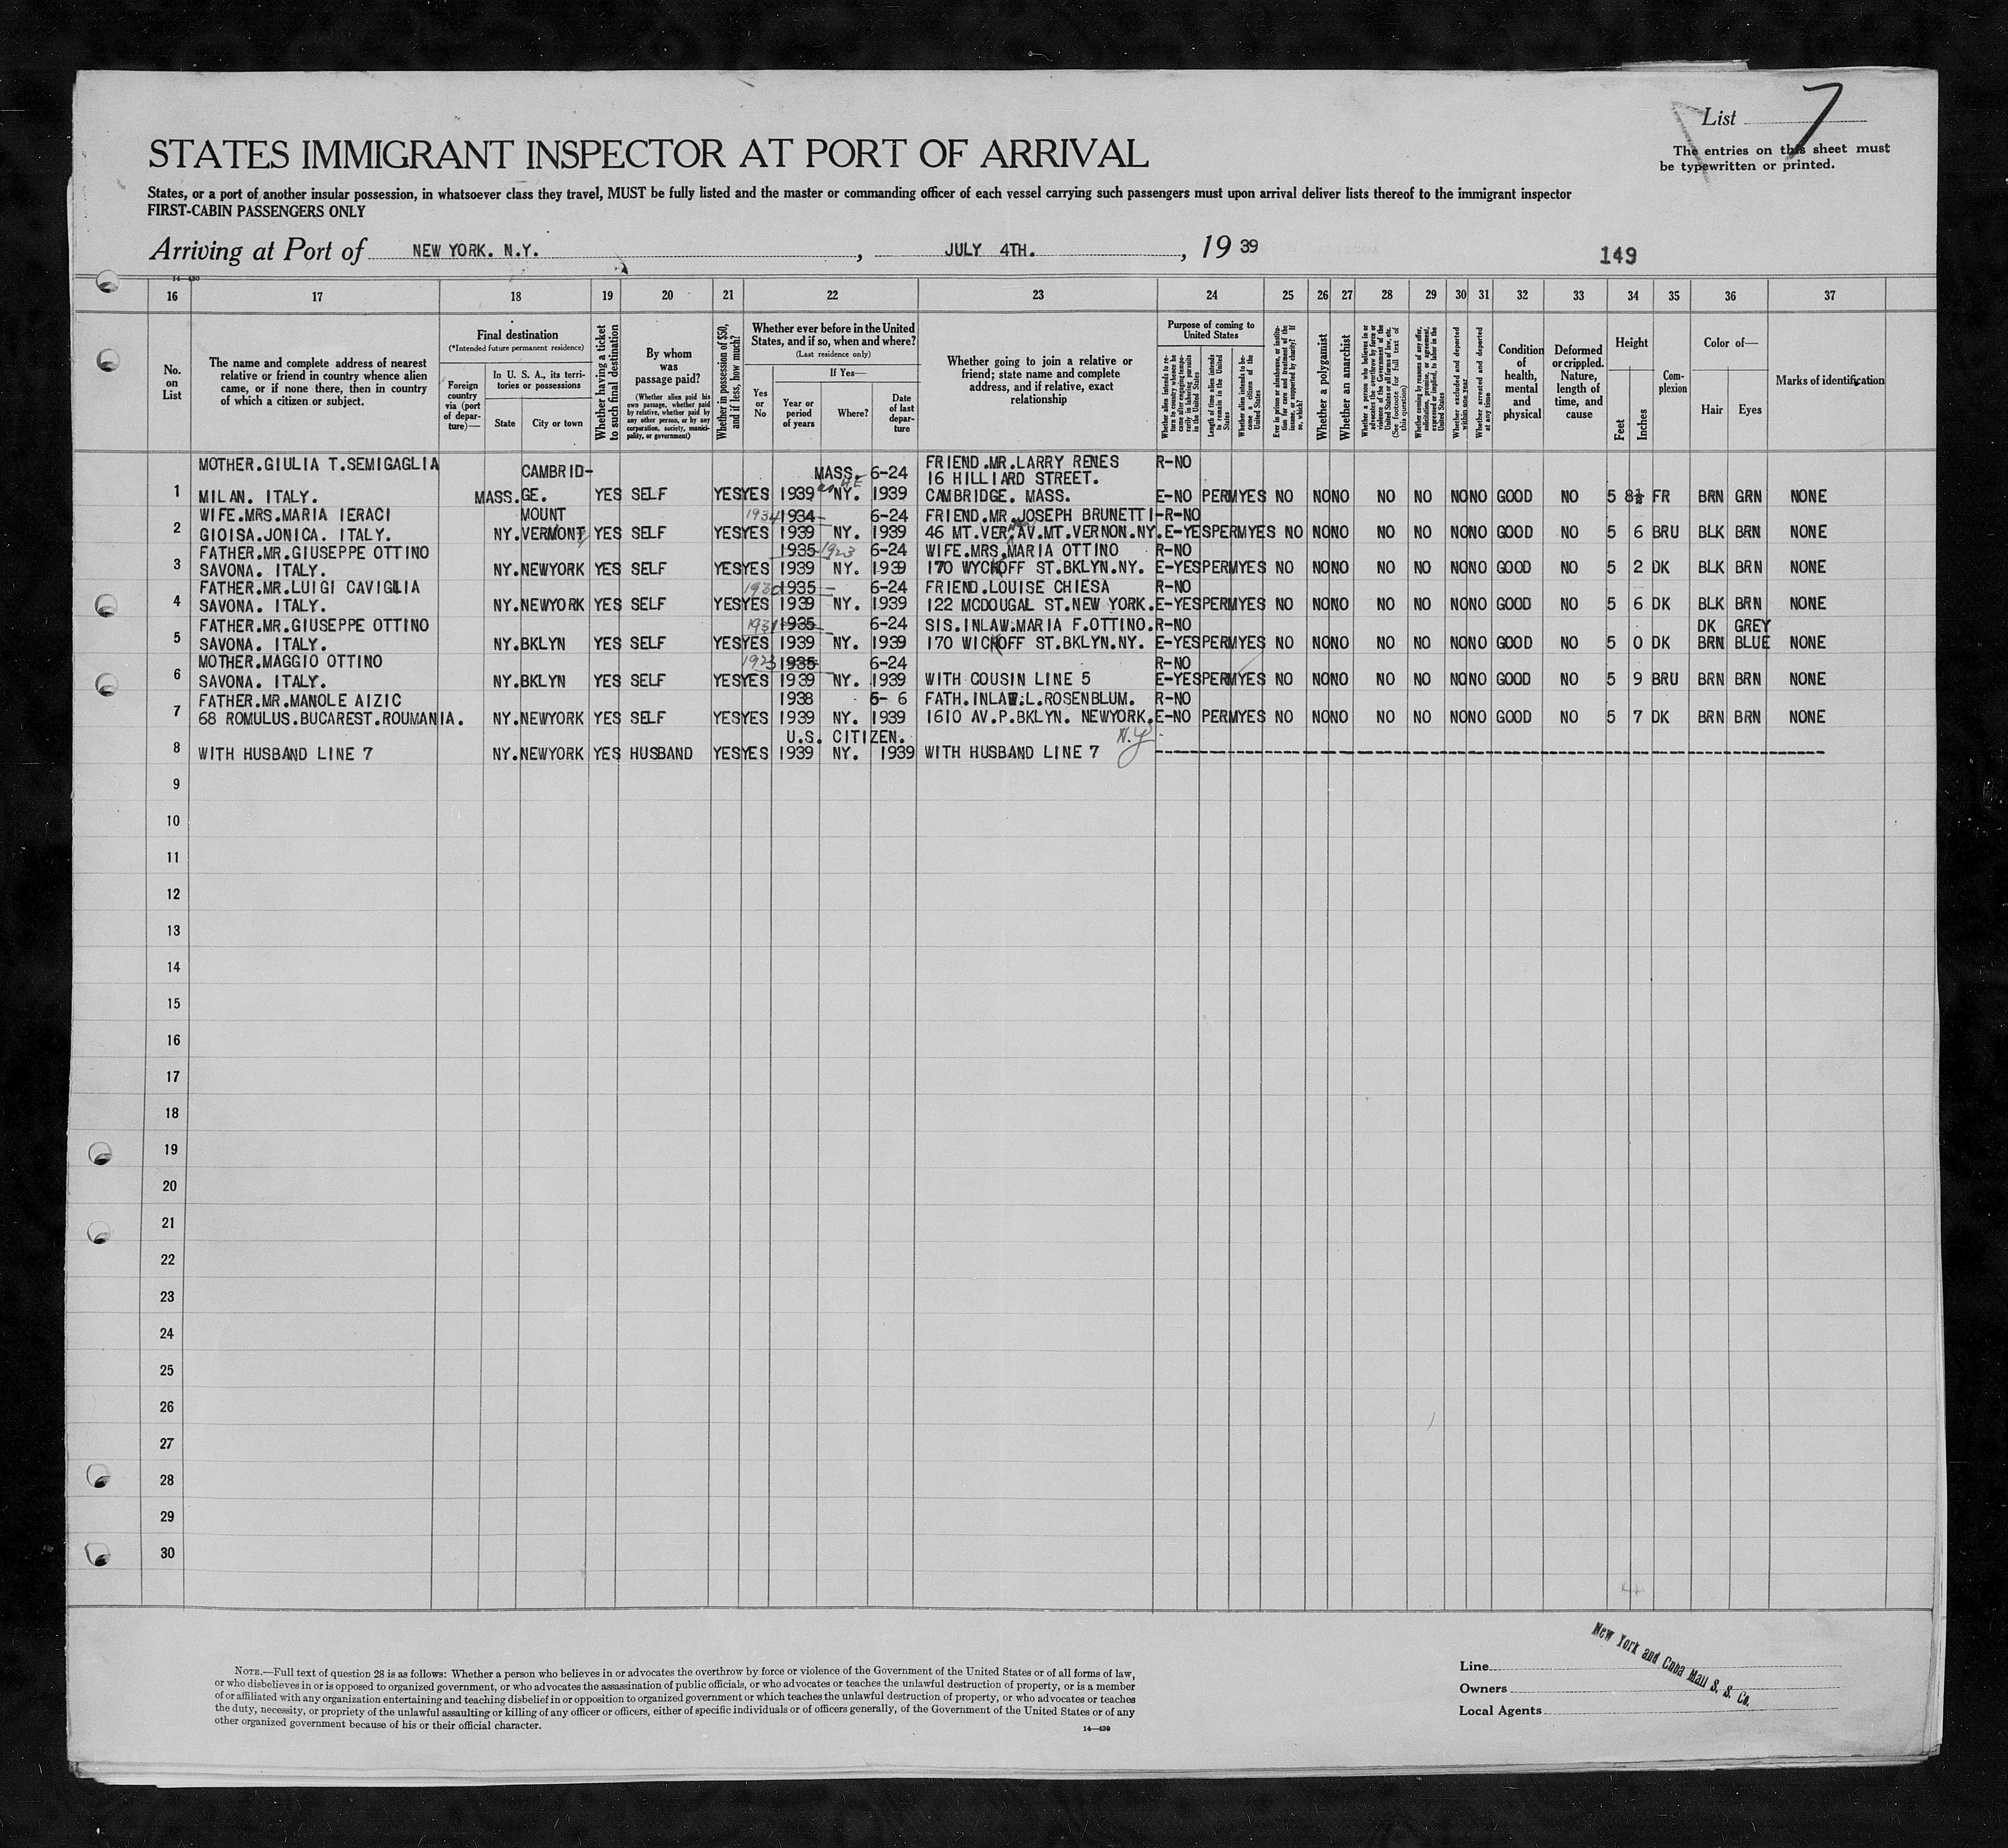 List 7
The entries on this sheet must
be typewritten or printed.
STATES IMMIGRANT INSPECTOR AT PORT OF ARRIVAL
States, or a port of another insular possession, in whatsoever class they travel, MUST be fully listed and the master or commanding officer of each vessel carrying such passengers must upon arrival deliver lists thereof to the immigrant inspector
FIRST-CABIN PASSENGERS ONLY
Arriving at Port of NEW YORK. N.Y. , JULY 4TH. , 19 39 149
14-430
16 17 18 19 20 21 22 23 24 25 26 27 28 29 30 31 32 33 34 35 36 37
No. on List
The name and complete address of nearest relative or friend in country whence alien came, or if none there, then in country of which a citizen or subject.
Final destination
(*Intended future permanent residence)
Foreign country via (port of departure)—
In U. S. A., its territories or possessions
State
City or town
Whether having a ticket to such final destination
By whom was passage paid?
(Whether alien paid his own passage, whether paid by relative, whether paid by any other person, or by any corporation, society, municipality, or government)
Whether in possession of $50, and if less, how much?
Whether ever before in the United States, and if so, when and where?
(Last residence only)
Yes or No
If Yes—
Year or period of years
Where?
Date of last departure
Whether going to join a relative or friend; state name and complete address, and if relative, exact relationship
Purpose of coming to United States
Whether alien intends to return to country whence he came after engaging temporarily in laboring pursuits in the United States
Length of time alien intends to remain in the United States
Whether alien intends to become a citizen of the United States
Ever in prison or almshouse, or institution for care and treatment of the insane, or supported by charity? If so, which?
Whether a polygamist
Whether an anarchist
Whether a person who believes in or advocates the overthrow by force or violence of the Government of the United States or all forms of law, etc. (See footnote for full text of this question)
Whether coming by reasons of any offer, solicitation, promise, or agreement, expressed or implied, to labor in the United States
Whether excluded and deported within one year
Whether arrested and deported at any time
Condition of health, mental and physical
Deformed or crippled. Nature, length of time, and cause
Height
Feet
Inches
Complexion
Color of—
Hair
Eyes
Marks of identification
MOTHER.GIULIA T.SEMIGAGLIA CAMBRID- MASS. 6-24 FRIEND.MR.LARRY RENES R-NO
16 HILLIARD STREET.
1 MILAN. ITALY. MASS. GE. YES SELF YES YES 1939 NY. 1939 CAMBRIDGE. MASS. E-NO PERM YES NO NO NO NO NO NO NO GOOD NO 5 8½ FR BRN GRN NONE
WIFE.MRS.MARIA IERACI MOUNT 1934 1934 6-24 FRIEND.MR.JOSEPH BRUNETTI-R-NO
2 GIOISA.JONICA. ITALY. NY. VERMONT YES SELF YES YES 1939 NY. 1939 46 MT.VER.AV.MT.VERNON.NY. E-YES PERM YES NO NO NO NO NO NO NO GOOD NO 5 6 BRU BLK BRN NONE
FATHER.MR.GIUSEPPE OTTINO 1935 1923 6-24 WIFE.MRS.MARIA OTTINO R-NO
3 SAVONA. ITALY. NY. NEWYORK YES SELF YES YES 1939 NY. 1939 170 WYCKOFF ST.BKLYN.NY. E-YES PERM YES NO NO NO NO NO NO NO GOOD NO 5 2 DK BLK BRN NONE
FATHER.MR.LUIGI CAVIGLIA 1930 1935 6-24 FRIEND.LOUISE CHIESA R-NO
4 SAVONA. ITALY. NY. NEWYORK YES SELF YES YES 1939 NY. 1939 122 MCDOUGAL ST.NEW YORK. E-YES PERM YES NO NO NO NO NO NO NO GOOD NO 5 6 DK BLK BRN NONE
FATHER.MR.GIUSEPPE OTTINO 1931 1935 6-24 SIS.INLAW.MARIA F.OTTINO. R-NO DK GREY
5 SAVONA. ITALY. NY. BKLYN YES SELF YES YES 1939 NY. 1939 170 WICKOFF ST.BKLYN.NY. E-YES PERM YES NO NO NO NO NO NO NO GOOD NO 5 0 DK BRN BLUE NONE
MOTHER.MAGGIO OTTINO 1923 1935 6-24 R-NO
6 SAVONA. ITALY. NY. BKLYN YES SELF YES YES 1939 NY. 1939 WITH COUSIN LINE 5 E-YES PERM YES NO NO NO NO NO NO NO GOOD NO 5 9 BRU BRN BRN NONE
FATHER.MR.MANOLE AIZIC 1938 6- 6 FATH.INLAW.L.ROSENBLUM. R-NO
7 68 ROMULUS.BUCAREST.ROUMANIA. NY. NEWYORK YES SELF YES YES 1939 NY. 1939 1610 AV.P.BKLYN. NEWYORK. E-NO PERM YES NO NO NO NO NO NO NO GOOD NO 5 7 DK BRN BRN NONE
U.S. CITIZEN. N.Y.
8 WITH HUSBAND LINE 7 NY. NEWYORK YES HUSBAND YES YES 1939 NY. 1939 WITH HUSBAND LINE 7
9
10
11
12
13
14
15
16
17
18
19
20
21
22
23
24
25
26
27
28
29
30
NOTE.—Full text of question 28 is as follows: Whether a person who believes in or advocates the overthrow by force or violence of the Government of the United States or of all forms of law,
or who disbelieves in or is opposed to organized government, or who advocates the assassination of public officials, or who advocates or teaches the unlawful destruction of property, or is a member
of or affiliated with any organization entertaining and teaching disbelief in or opposition to organized government or which teaches the unlawful destruction of property, or who advocates or teaches
the duty, necessity, or propriety of the unlawful assaulting or killing of any officer or officers, either of specific individuals or of officers generally, of the Government of the United States or of any
other organized government because of his or their official character.
14—430
Line
Owners
Local Agents
New York and Cuba Mail S. S. Co.